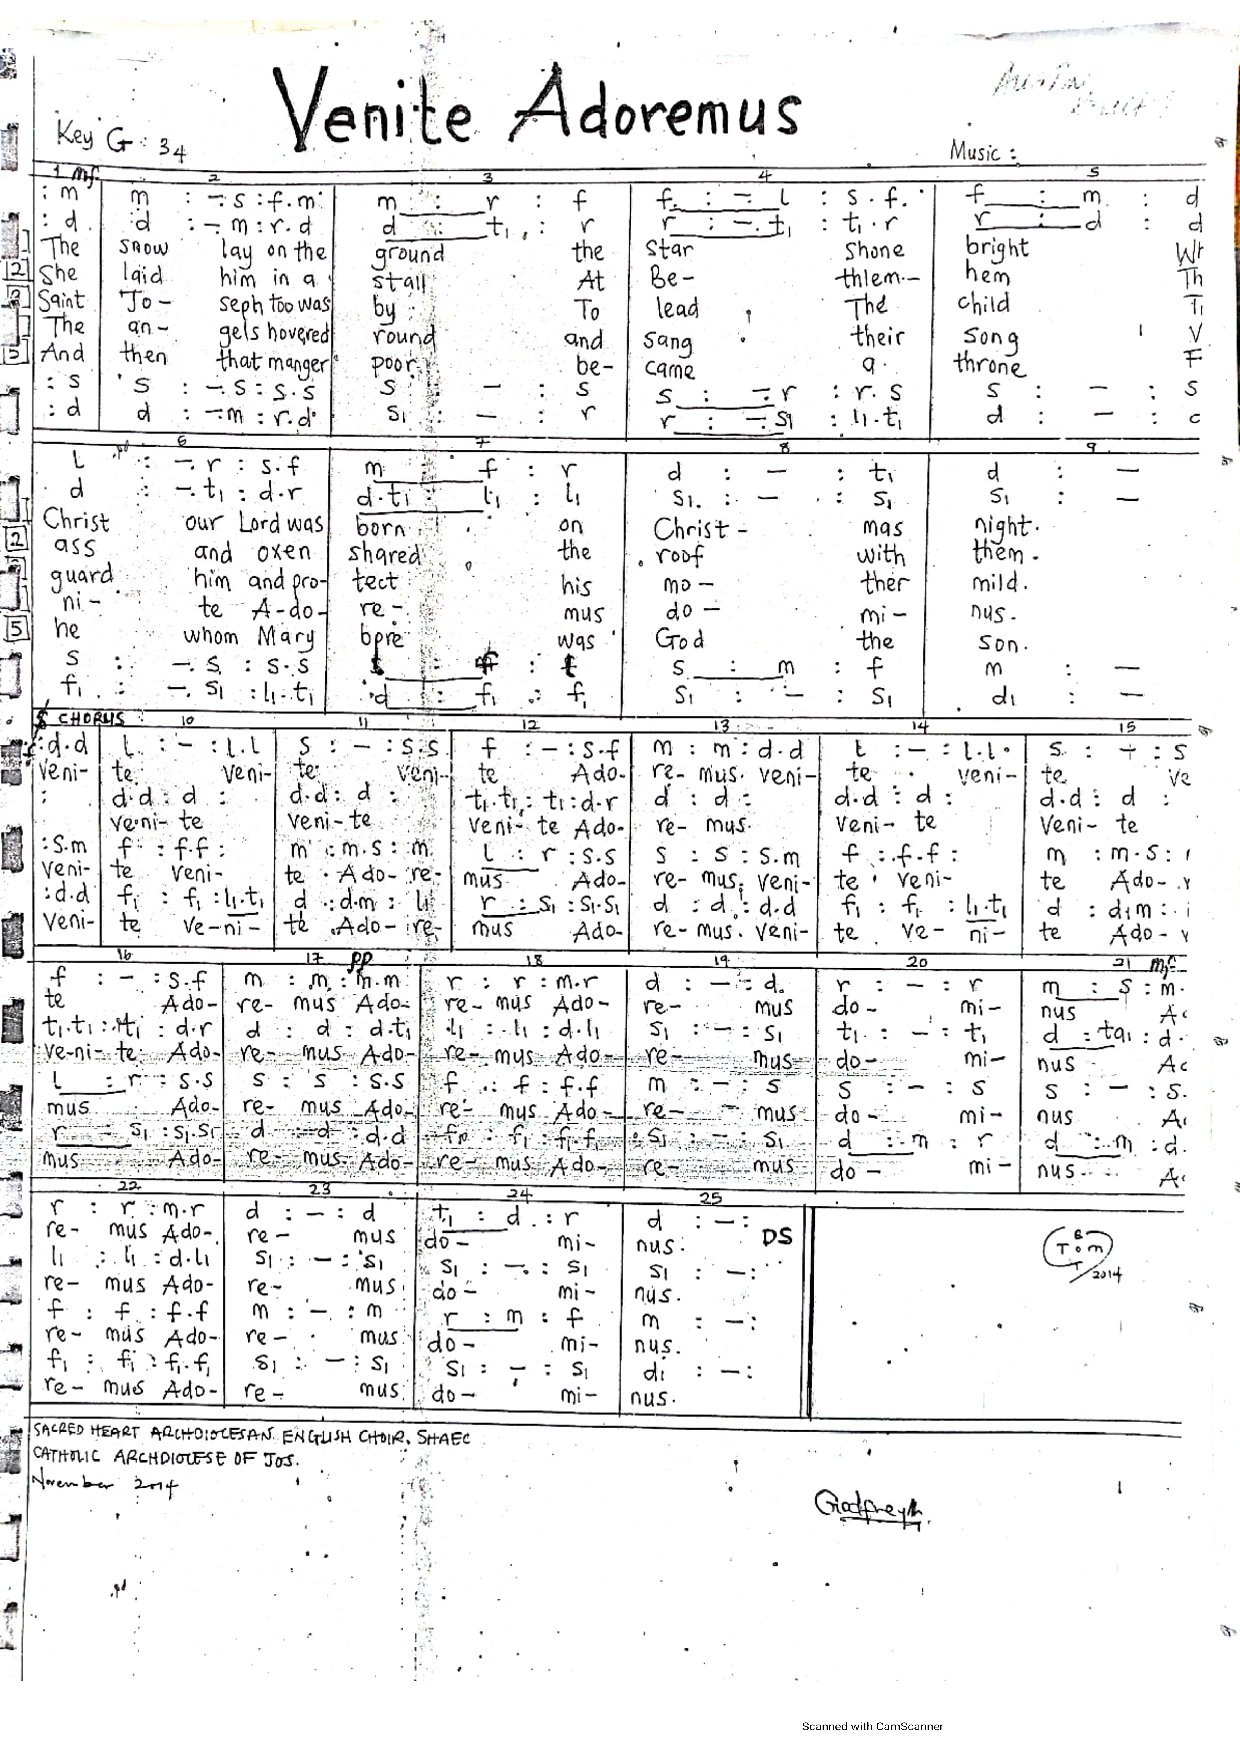 Venite Adoremus
Key G : 34
Music :
1 mf 2 3 4 5
: m m : -. s : f.m m : r : f f : -. l : s.f. f : m : d
: d d : -. m : r.d d : t₁ : r r : -. t₁ : t₁.r r : d : d
The snow lay on the ground the star shone bright
[2] She laid him in a stall At Be- thlem- hem
Saint Jo- seph too was by To lead The child
The an- gels hovered round and sang their song
[5] And then that manger poor be- came a throne
: s s : -. s : s.s s : - : s s : -. r : r.s s : - : s
: d d : -. m : r.d s₁ : - : r r : -. s₁ : l₁.t₁ d : - :
6 7 8 9
l : -. r : s.f m : f : r d : - : t₁ d : -
d : -. t₁ : d.r d.t₁ : l₁ : l₁ s₁ : - : s₁ s₁ : -
Christ our Lord was born on Christ- mas night.
[2] ass and oxen shared the roof with them.
guard him and pro- tect his mo- ther mild.
ni- te A-do- re- mus do- mi- nus.
[5] he whom Mary bore was God the son.
s : -. s : s.s s : m : f m : -
f₁ : -. s₁ : l₁.t₁ d : f₁ : f₁ s₁ : - : s₁ d₁ : -
CHORUS 10 11 12 13 14 15
: d.d l : - : l.l s : - : s.s f : - : s.f m : m : d.d l : - : l.l s : - : s
Veni- te Veni- te veni- te Ado- re- mus. veni- te veni- te ve
: d.d : d : d.d : d : t₁.t₁ : t₁ : d.r d : d : d.d : d : d.d : d :
veni- te veni-te veni- te Ado- re- mus. veni- te veni- te
: s.m f : f.f : m : m.s : m l : r : s.s s : s : s.m f : f.f : m : m.s :
veni- te veni- te Ado- re- mus Ado- re- mus, veni- te veni- te Ado-
: d.d f₁ : f₁ : l₁.t₁ d : d.m : l₁ r : s₁ : s₁.s₁ d : d : d.d f₁ : f₁ : l₁.t₁ d : d.m :
Veni- te ve-ni- te Ado- re- mus Ado- re- mus. veni- te ve- ni- te Ado-
16 17 pp 18 19 20 21 mf
f : - : s.f m : m : m.m r : r : m.r d : - : d r : - : r m : s : m.
te Ado- re- mus Ado- re- mus Ado- re- mus do- mi- nus
t₁.t₁ : t₁ : d.r d : d : d.t₁ l₁ : l₁ : d.l₁ s₁ : - : s₁ t₁ : - : t₁ d : ta₁ : d.
ve-ni- te Ado- re- mus Ado- re- mus Ado- re- mus do- mi- nus
l : r : s.s s : s : s.s f : f : f.f m : - : s s : - : s s : - : s.
mus Ado- re- mus Ado- re- mus Ado- re- mus do- mi- nus
r : s₁ : s₁.s₁ d : d : d.d f₁ : f₁ : f₁.f₁ s₁ : - : s₁ d : m : r d : m : d.
mus Ado- re- mus Ado- re- mus Ado- re- mus do- mi- nus.
22 23 24 25
r : r : m.r d : - : d t₁ : d : r d : - :
re- mus Ado- re- mus do- mi- nus. DS
l₁ : l₁ : d.l₁ s₁ : - : s₁ s₁ : - : s₁ s₁ : - :
re- mus Ado- re- mus do- mi- nus.
f : f : f.f m : - : m r : m : f m : - :
re- mus Ado- re- mus do- mi- nus.
f₁ : f₁ : f₁.f₁ s₁ : - : s₁ s₁ : - : s₁ d₁ : - :
re- mus Ado- re- mus. do- mi- nus.
Tom
2014
SACRED HEART ARCHDIOCESAN ENGLISH CHOIR, SHAEC
CATHOLIC ARCHDIOCESE OF JOS.
November 2014
Scanned with CamScanner